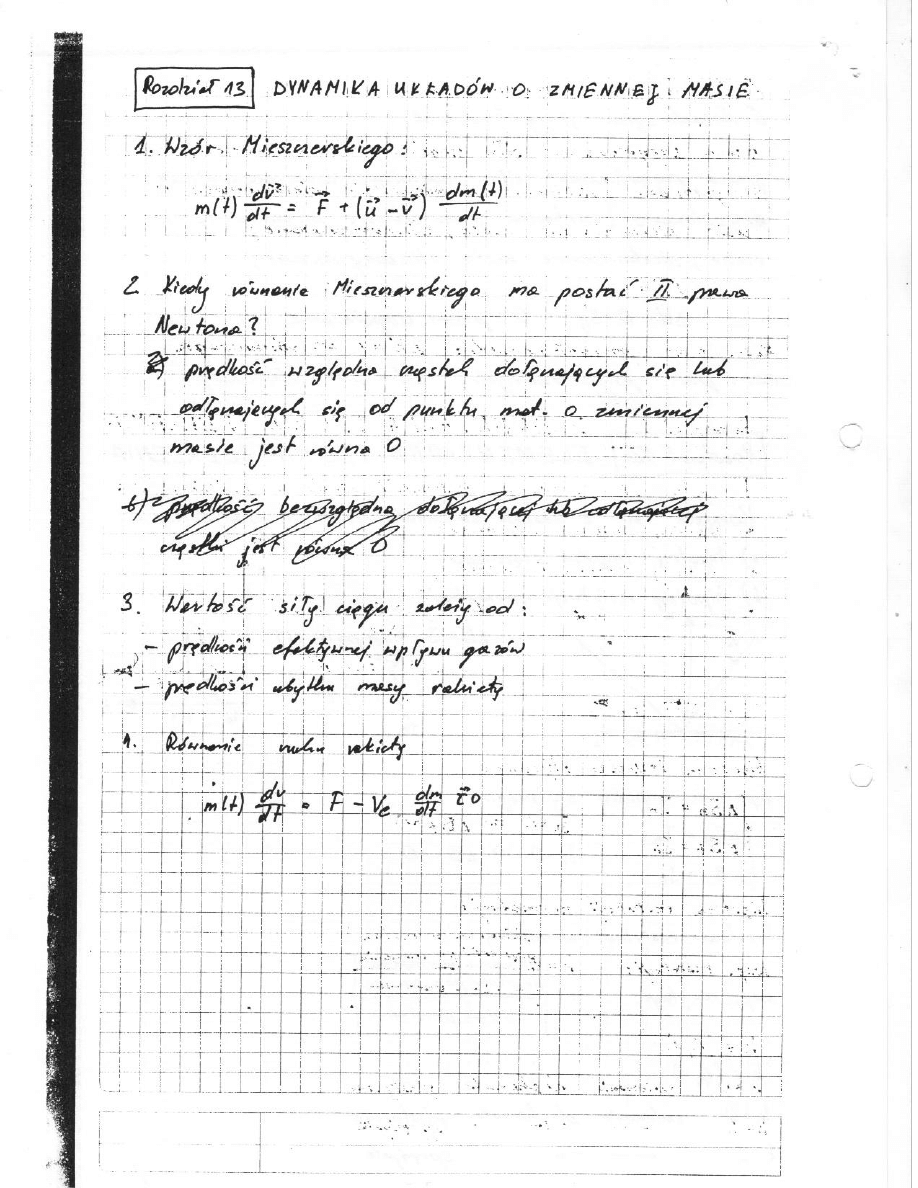 Rozdział 13 DYNAMIKA UKŁADÓW O ZMIENNEJ MASIE
1. Wzór Mieszczerskiego:
m(t) dv⃗/dt = F⃗ + (u⃗ - v⃗) dm(t)/dt
2. Kiedy równanie Mieszczerskiego ma postać II prawa
Newtona?
a) prędkość względna cząstek dołączających się lub
odłączających się od punktu mat. o zmiennej
masie jest równa 0
b) prędkość bezwzględna dołączającej lub odłączającej
cząstki jest równa 0
3. Wartość siły ciągu zależy od:
- prędkości efektywnej wpływu gazów
- prędkości ubytku masy rakiety
4. Równanie ruchu rakiety
m(t) dv/dt = F - Ve dm/dt τ⃗0